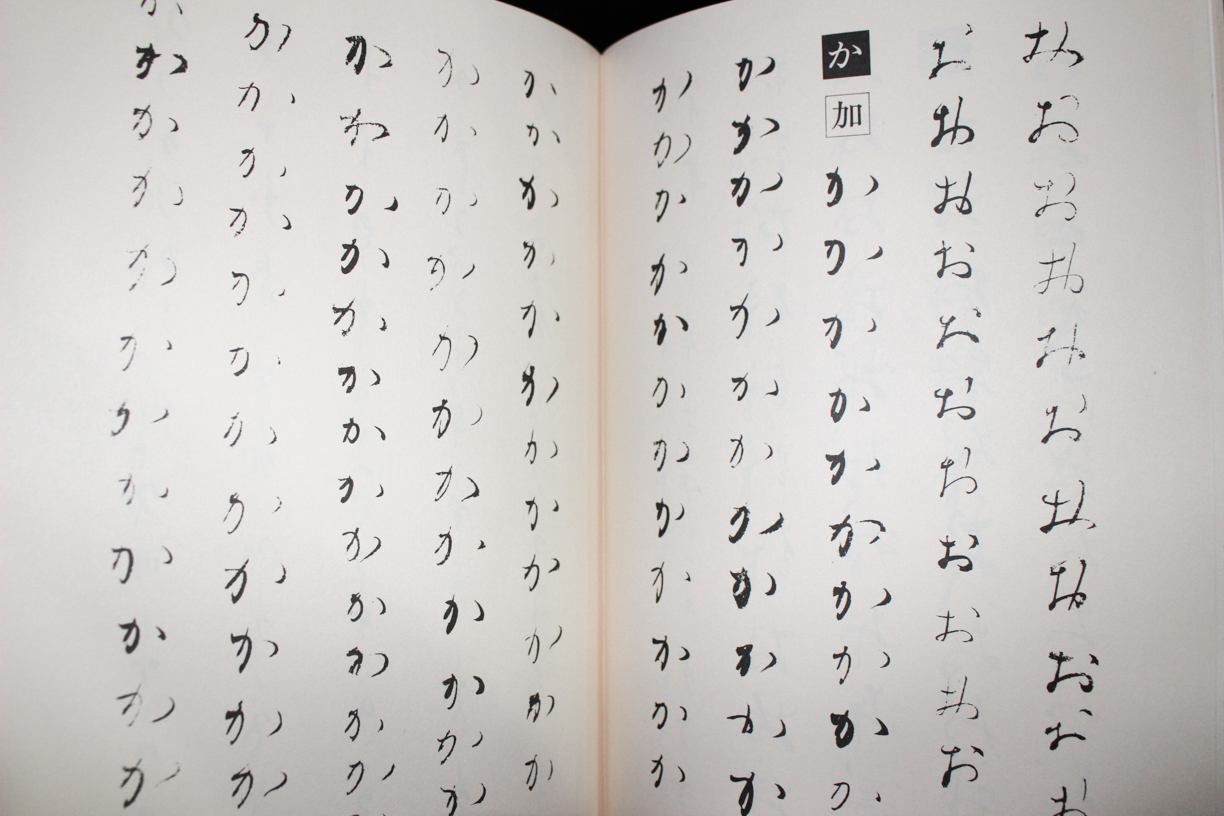 おおおおおおおおおおお
おおおおおおおおおおお
か 加 かかかかかかかかかか
かかかかかかかかかかかか
かかかかかかかかかかかか
かかかかかかかかかかかか
かかかかかかかかかかかか
かかかかかかかかかかかかか
かかかかかかかかかかかか
かかかかかかかかかかかか